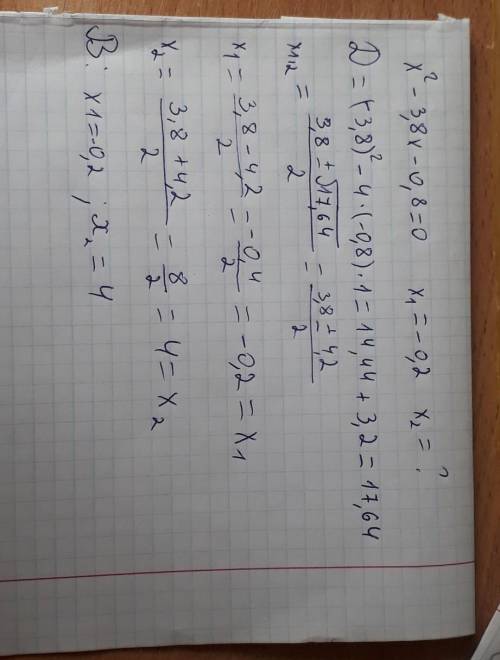 x² - 3,8x - 0,8 = 0 x₁ = -0,2 x₂ = ?
D = (-3,8)² - 4·(-0,8)·1 = 14,44 + 3,2 = 17,64
x₁,₂ = (3,8 ± √17,64)/2 = (3,8 ± 4,2)/2
x₁ = (3,8 - 4,2)/2 = -0,4/2 = -0,2 = x₁
x₂ = (3,8 + 4,2)/2 = 8/2 = 4 = x₂
В: x1 = -0,2 ; x₂ = 4